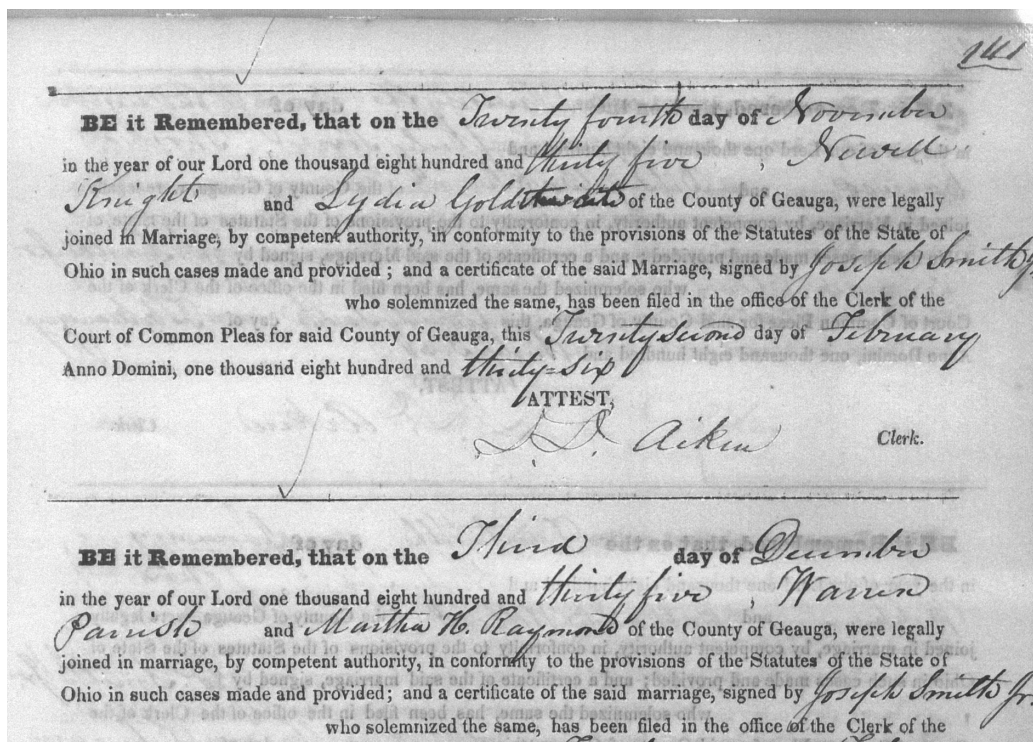 141
BE it Remembered, that on the Twenty fourth day of November
in the year of our Lord one thousand eight hundred and thirty five , Newell
Knight and Lydia Goldthwaite of the County of Geauga, were legally
joined in Marriage, by competent authority, in conformity to the provisions of the Statutes of the State of
Ohio in such cases made and provided ; and a certificate of the said Marriage, signed by Joseph Smith Jr
who solemnized the same, has been filed in the office of the Clerk of the
Court of Common Pleas for said County of Geauga, this Twenty second day of February
Anno Domini, one thousand eight hundred and thirty=six
ATTEST,
D. D. Aiken Clerk.
BE it Remembered, that on the Third day of December
in the year of our Lord one thousand eight hundred and thirty five , Warren
Parrish and Martha H. Raymond of the County of Geauga, were legally
joined in marriage, by competent authority, in conformity to the provisions of the Statutes of the State of
Ohio in such cases made and provided; and a certificate of the said marriage, signed by Joseph Smith Jr.
who solemnized the same, has been filed in the office of the Clerk of the